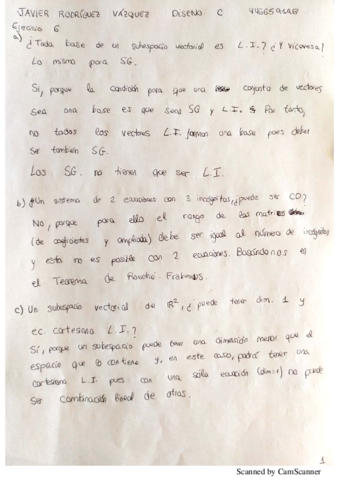 JAVIER RODRÍGUEZ VÁZQUEZ DISEÑO C
Ejercicio 6
a) ¿Toda base de un subespacio vectorial es L.I.? ¿Y viceversa?
Lo mismo para SG.
Sí, porque la condición para que una conjunto de vectores
sea una base es que sean SG y L.I. Por tanto,
no todos los vectores L.I. forman una base pues deben
ser también SG.
Los SG. no tienen que ser L.I.
b) ¿Un sistema de 2 ecuaciones con 3 incógnitas, ¿puede ser CD?
No, porque para ello el rango de las matrices
(de coeficientes y ampliada) debe ser igual al número de incógnitas
y esto no es posible con 2 ecuaciones. Basándonos en
el Teorema de Rouché-Frobenius.
c) Un subespacio vectorial de ℝ², ¿puede tener dim. 1 y
ec. cartesiana L.I.?
Sí, porque un subespacio puede tener una dimensión menor que el
espacio que lo contiene y, en este caso, podrá tener una
cartesiana L.I. pues con una sola ecuación (dim=1) no puede
ser combinación lineal de otras.
1
Scanned by CamScanner